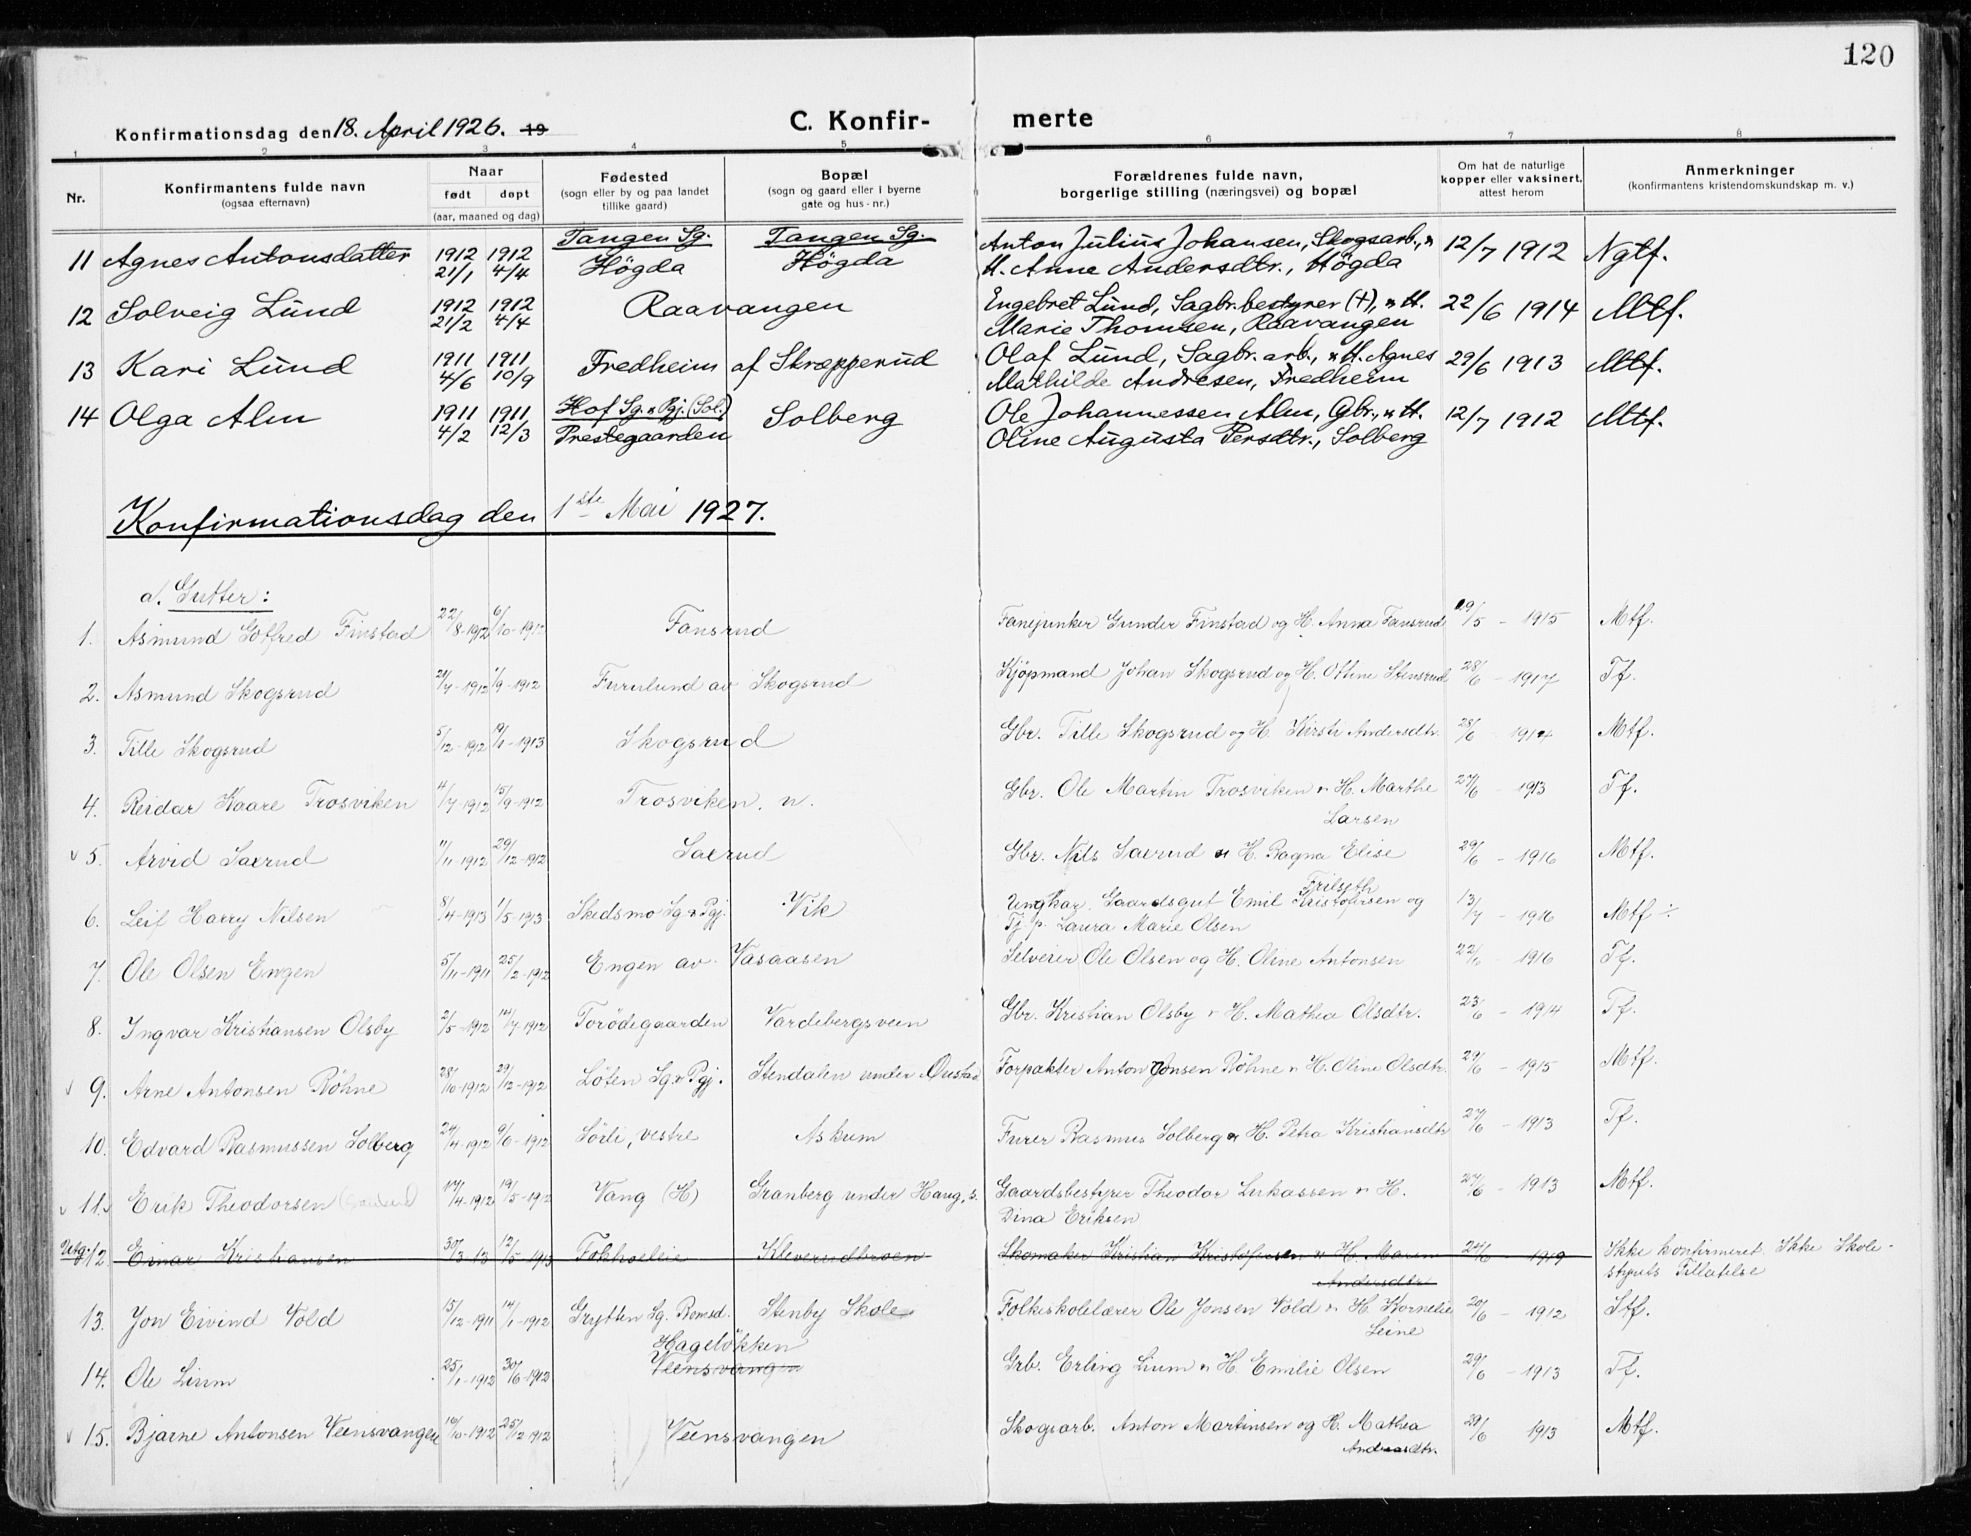 120
Konfirmationsdag den 18. April 1926. 19
C. Konfirmerte
1 2 3 4 5 6 7 8
Nr.
Konfirmantens fulde navn
(ogsaa efternavn)
Naar
født døpt
(aar, maaned og dag)
Fødested
(sogn eller by og paa landet
tillike gaard)
Bopæl
(sogn og gaard eller i byerne
gate og hus-nr.)
Forældrenes fulde navn,
borgerlige stilling (næringsvei) og bopæl
Om hat de naturlige
kopper eller vaksinert,
attest herom
Anmerkninger
(konfirmantens kristendomskundskap m. v.)
11 Agnes Antonsdatter 1912 21/1 1912 4/4 Tangen Sg. Högda Tangen Sg. Högda Anton Julius Johansen, Skogsarb., &
H. Anne Andersdtr., Högda 12/7 1912 Ngtf.
12 Solveig Lund 1912 21/2 1912 4/4 Raavangen Engebret Lund, Sagbr.bestyrer (+), & H.
Marie Thomsen, Raavangen 22/6 1914 Mtf.
13 Kari Lund 1911 4/6 1911 10/9 Fredheim af Skræpperud Olaf Lund, Sagbr. arb., & H. Agnes
Mathilde Andresen, Fredheim 29/6 1913 Mtf.
14 Olga Alm 1911 4/2 1911 12/3 Hof Sg. & Pgj. (Sol.) Prestegaarden Solberg Ole Johannessen Alm, Gbr., & H.
Oline Augusta Persdtr., Solberg 12/7 1912 Mtf.
Konfirmationsdag den 1ste Mai 1927.
a/. Gutter:
1. Asmund Gotfred Finstad 22/8-1912 6/10-1912 Fansrud Fanejunker Gunder Finstad og H. Anna Fansrud 29/5 - 1915 Mtf.
2. Asmund Skogsrud 21/7-1912 1/9-1912 Furulund av Skogsrud Kjøpmand Johan Skogsrud og H. Othine Stensrud 28/6 - 1917 Tf.
3. Tille Skogsrud 5/12-1912 19/1-1913 Skogsrud Gbr. Tille Skogsrud og H. Kirsti Andersdtr. 28/6 1914 Mtf.
4. Reidar Kaare Trosviken 4/7-1912 15/9-1912 Trosviken, n. Gbr. Ole Martin Trosviken & H. Marthe
Larsen 27/6 - 1913 Tf.
v 5. Arvid Saxrud 11/11-1912 29/12-1912 Saxrud Gbr. Nils Saxrud & H. Ragna Elise
Frilseth 29/6 - 1916 Mtf.
6. Leif Harry Nilsen 8/4-1913 1/5-1913 Skedsmo Sg & Pgj. Vik Ungkar. Gaardsgut Emil Kristofersen og
Tj. p. Laura Marie Olsen 13/7 - 1916 Mtf ÷
7. Ole Olsen Engen 5/11-1911 25/2-1912 Engen av Vasaasen Selveier Ole Olsen og H. Oline Antonsen - 1916 Tf.
8. Ingvar Kristiansen Olsby 2/5-1912 14/7-1912 Torödegaarden Vardebergsveen Gbr. Kristian Olsby & H. Mathea Olsdtr. 23/6 - 1914 Tf.
v 9. Arne Antonsen Röhne 28/10-1912 29/12-1912 Löten Sg & Pgj. Stendalen under Forpakter Anton Jonsen Röhne & H. Oline Olsdtr. 29/6 - 1915 Mtf.
10. Edvard Rasmussen Solberg 24/4-1912 9/6-1912 Sörli, vestre Askum Furer Rasmus Solberg & H. Petra Kristiansdtr. 27/6 - 1913 Tf.
v 11. Erik Theodorsen 17/4-1912 19/5-1912 Vang (H) Granberg under Haug, s. Gaardsbestyrer Theodor Lukassen & H.
Dina Eriksen 27/6 - 1913 Mtf.
Utg. 12. Einar Kristiansen 30/3-13 12/5-1913 Fokhoeleie Kleverudbroen Skomaker Kristian Kristofersen & H. Maren
Andersdtr. 24/6 - 1919 Ikke konfirmeret. Ikke Skole-
styrets Tillatelse
13. Jon Eivind Vold 15/12-1911 14/1-1912 Grytten Sg. Romsd. Stenby Skole Folkeskolelærer Ole Jonsen Vold & H. Kornelie
Leine 20/6 - 1912 Stf.
14. Ole Lium 25/1-1912 30/6-1912 Hagelökken
Veensvangen Grb. Erling Lium & H. Emilie Olsen 29/6 - 1913 Tf.
v 15. Bjarne Antonsen Veensvangen 10/10-1912 25/12-1912 Veensvangen Skogsarb. Anton Martinsen og H. Mathea
Andreasdtr. 29/6 1913 Mtf.